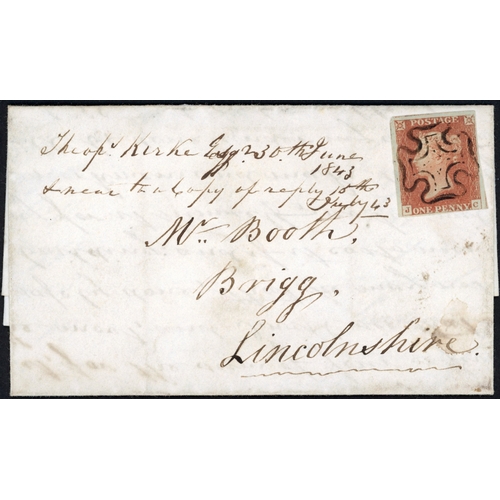 POSTAGE
ONE PENNY
Theops. Kirke Esqr 30th June
1843
& near to a Copy of reply 15th
July 43
Mr. Booth,
Brigg,
Lincolnshire.